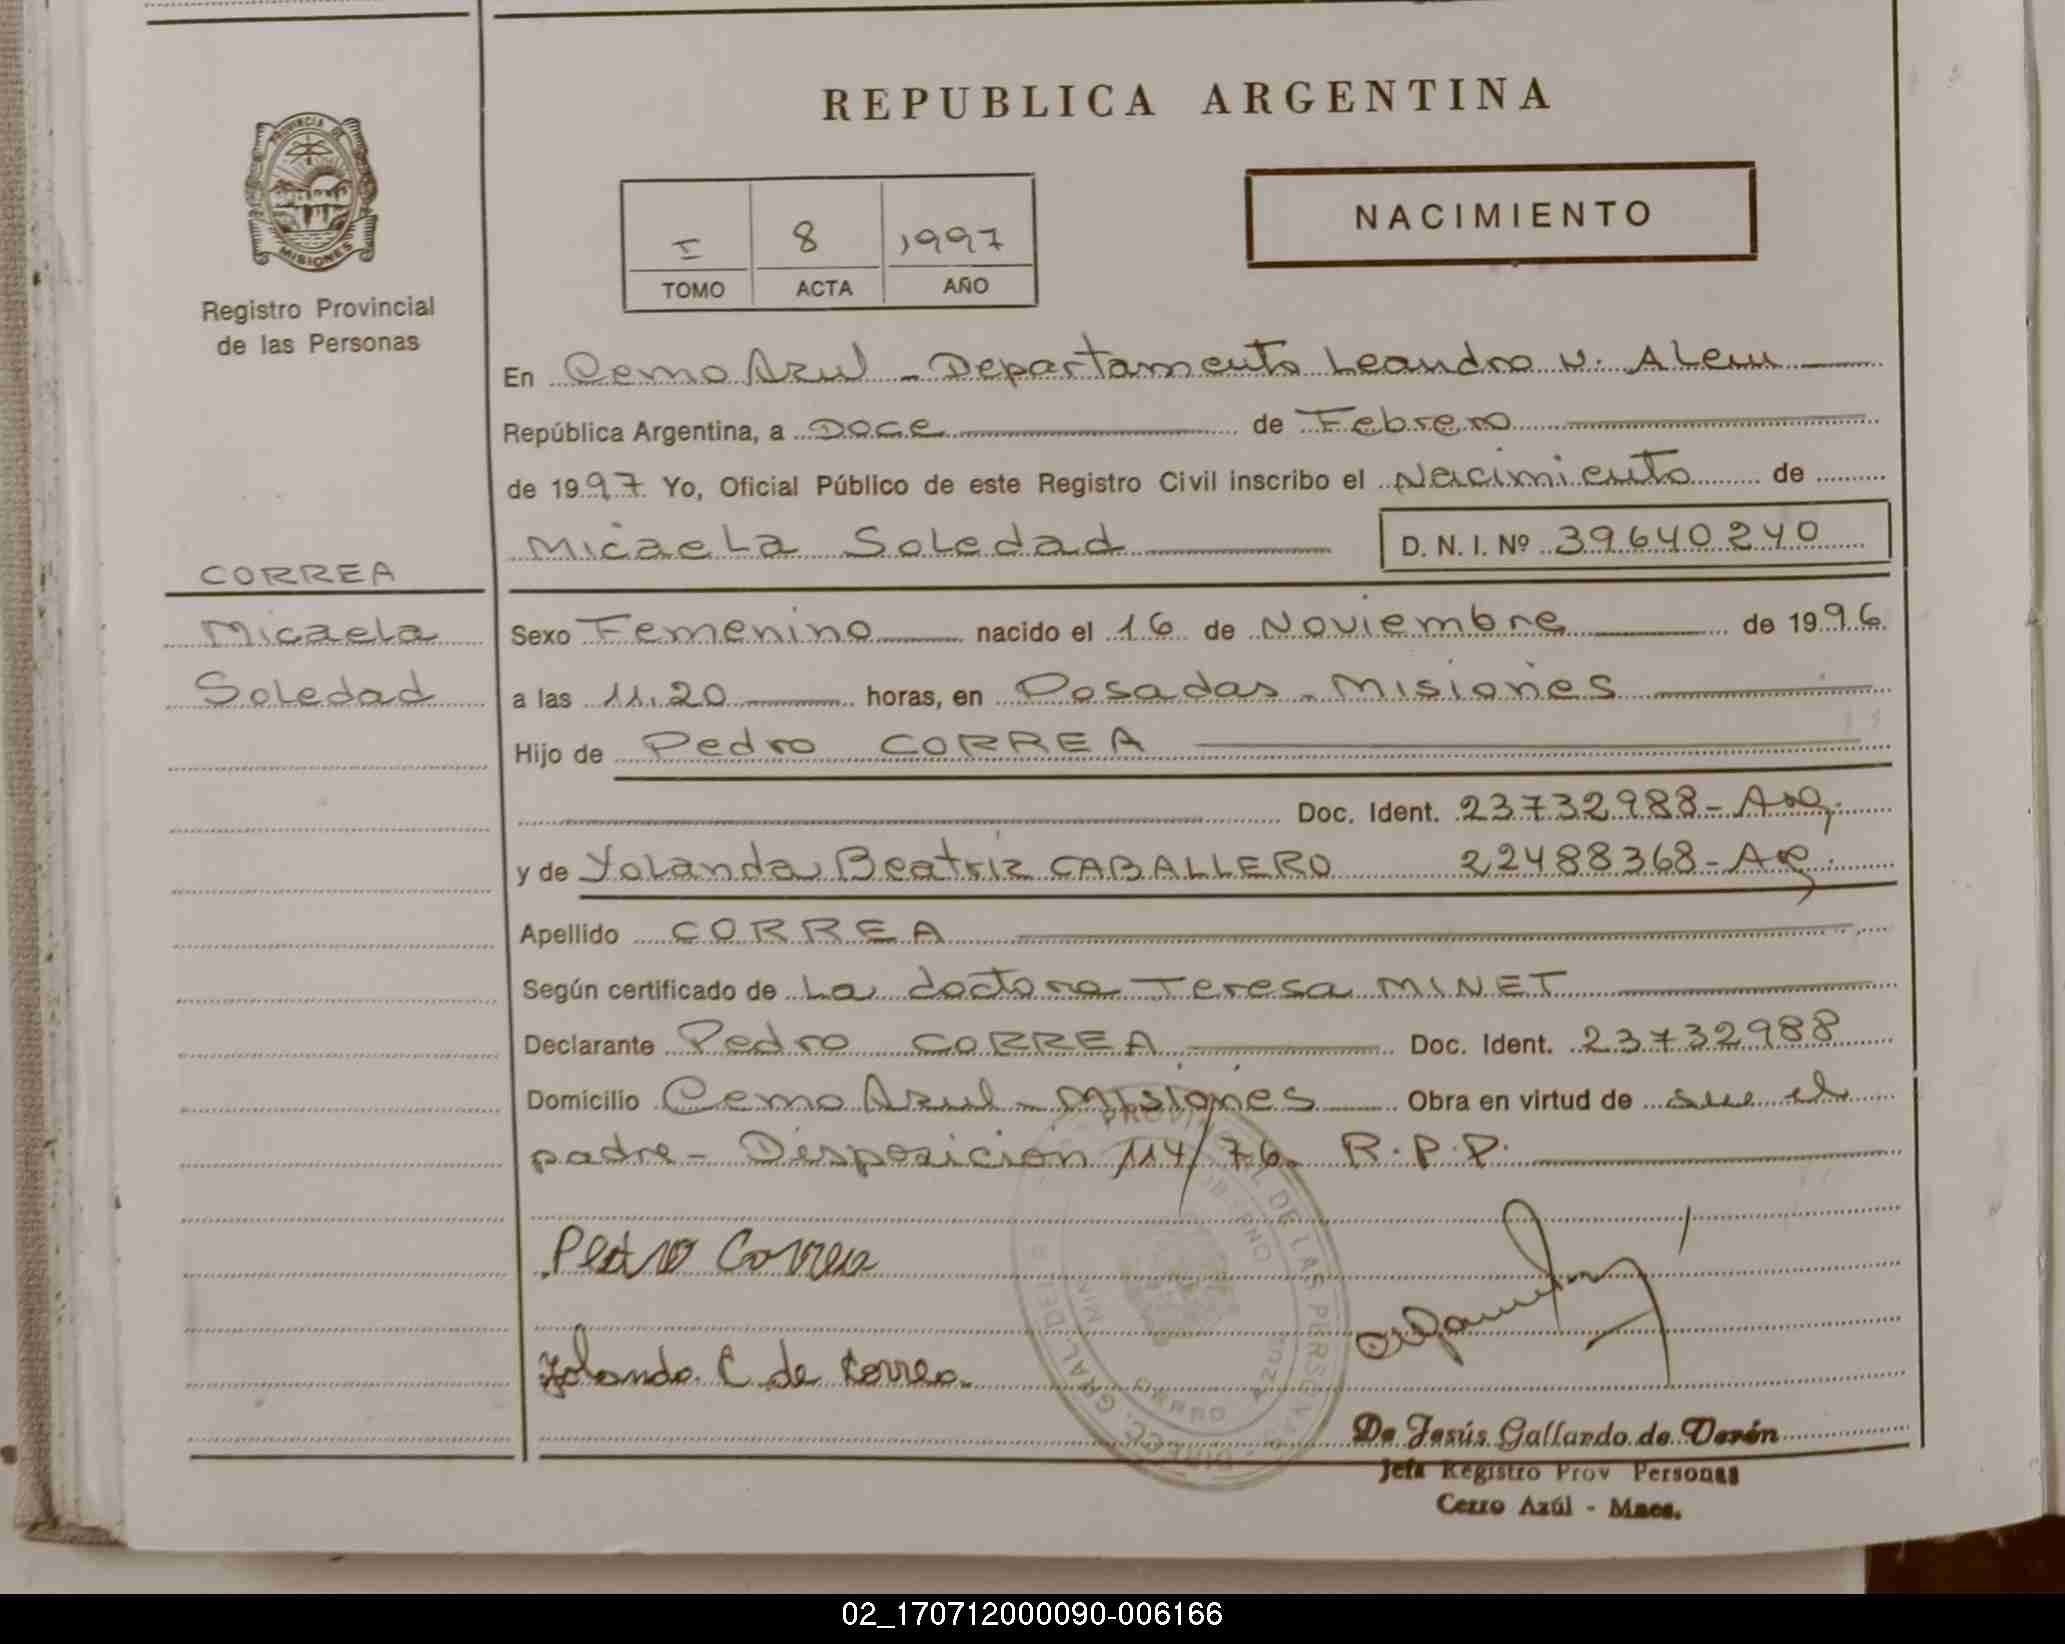 REPUBLICA ARGENTINA
PROVINCIA DE
MISIONES
Registro Provincial
de las Personas
I 8 1997
TOMO ACTA AÑO
NACIMIENTO
En Cerro Azul - Departamento Leandro N. Alem
República Argentina, a Doce de Febrero
de 1997 Yo, Oficial Público de este Registro Civil inscribo el Nacimiento de
Micaela Soledad D. N. I. Nº 39640240
CORREA
Micaela
Soledad
Sexo Femenino nacido el 16 de Noviembre de 1996
a las 11.20 horas, en Posadas - Misiones
Hijo de Pedro CORREA
Doc. Ident. 23732988 - Arg.
y de Yolanda Beatriz CABALLERO 22488368 - Arg.
Apellido CORREA
Según certificado de La doctora Teresa MINET
Declarante Pedro CORREA Doc. Ident. 23732988
Domicilio Cerro Azul - Misiones Obra en virtud de
padre - Disposicion 114/76 R.P.P.
Pedro Correa
Yolanda C. de Correa.
DE LAS PERSONAS
CERRO AZUL
De Jesús Gallardo de Verón
Jefa Registro Prov Personas
Cerro Azúl - Mnes.
02_170712000090-006166